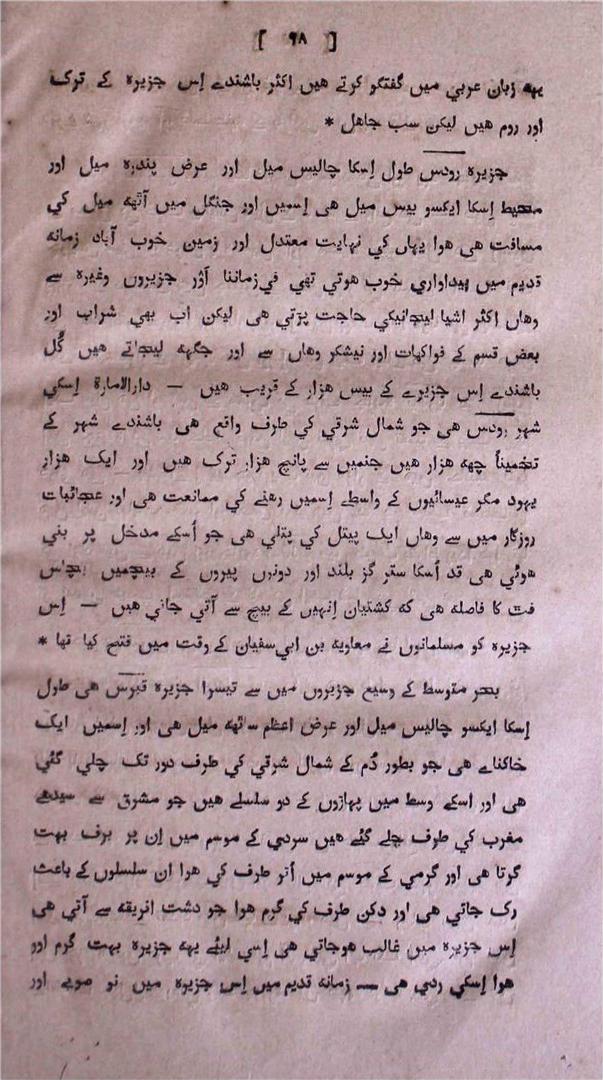 [ ٩٨ ]
يهه زبان عربي ميں گفتگو كرتے هيں اكثر باشندے اِس جزيره كے ترك
اور روم هيں ليكن سب جاهل *
جزيره رودس طول اِسكا چاليس ميل اور عرض پندره ميل اور
محيط اِسكا ايكسو بيس ميل هى اِسميں اور جنگل ميں آٹهه ميل كي
مسافت هى هوا يهاں كي نهايت معتدل اور زمين خوب آباد زمانه
قديم ميں پيداواري خوب هوتي تهي في زماننا اَوْر جزيروں وغيره سے
وهاں اكثر اشيا ليجانيكي حاجت پڑتي هى ليكن اب بهي شراب اور
بعض قسم كے فواكهات اور نيشكر وهاں سے اور جگهه ليجاتے هيں كُل
باشندے اِس جزيرے كے بيس هزار كے قريب هيں — دارالامارة اِسكي
شهر رودس هى جو شمال شرقي كي طرف واقع هى باشندے شهر كے
تخميناً چهه هزار هيں جنميں سے پانچ هزار ترك هيں اور ايك هزار
يهود مگر عيسائيوں كے واسطے اِسميں رهنے كي ممانعت هى اور عجائبات
روزگار ميں سے وهاں ايك پيتل كي پتلي هى جو اُسكے مدخل پر بني
هوئي هى قد اُسكا ستر گز بلند اور دونوں پيروں كے بيچميں پچاس
فٹ كا فاصله هى كه كشتيان اِنهيں كے بيچ سے آتي جاتي هيں — اِس
جزيره كو مسلمانوں نے معاويه بن ابي سفيان كے وقت ميں فتح كيا تها *
بحر متوسط كے وسيع جزيروں ميں سے تيسرا جزيره قبرس هى طول
اِسكا ايكسو چاليس ميل اور عرض اعظم ساٹهه ميل هى اور اِسميں ايك
خاكناے هى جو بطور دُم كے شمال شرقي كي طرف دور تك چلي گئي
هى اور اسكے وسط ميں پهاڑوں كے دو سلسلے هيں جو مشرق سے سيدهے
مغرب كي طرف چلے گئے هيں سردي كے موسم ميں اِن پر برف بهت
گرتا هى اور گرمي كے موسم ميں اُتر طرف كي هوا ان سلسلوں كے باعث
رك جاتي هى اور دكن طرف كي گرم هوا جو دشت افريقه سے آتي هى
اِس جزيره ميں غالب هوجاتي هى اِسي ليئے يهه جزيره بهت گرم اور
هوا اِسكي ردي هى — زمانه قديم ميں اِس جزيره ميں نو صوبے اور